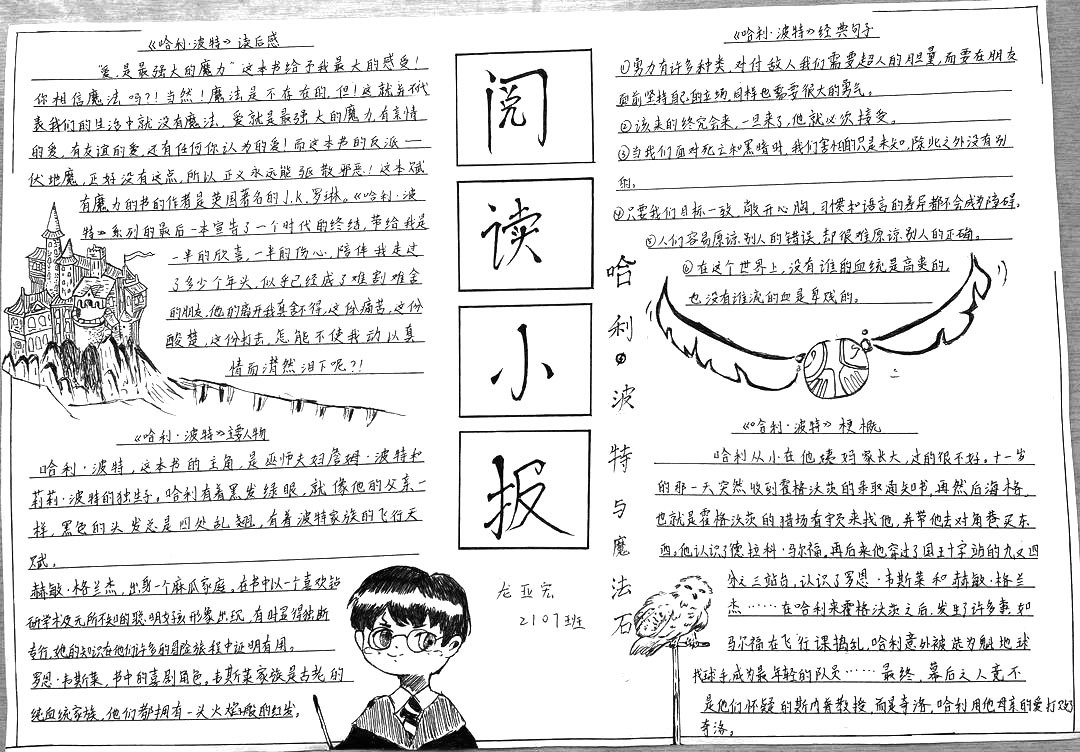 《哈利·波特》读后感
"爱,是最强大的魔力"这本书给予我最大的感受!
你相信魔法吗?!当然!魔法是不存在的,但!这就并不代
表我们的生活中就没有魔法,爱就是最强大的魔力,有亲情
的爱,有友谊的爱,还有任何你认为的爱!而这本书的反派——
伏地魔,正好没有这点,所以正义永远能驱散邪恶!这本赋
有魔力的书的作者是英国著名的J.K.罗琳。《哈利·波
特》系列的最后一本宣告了一个时代的终结,带给我是
一半的欣喜,一半的伤心,陪伴我走过
了多少个年头,似乎已经成了难割难舍
的朋友,他的离开我真舍不得,这份痛苦,这份
酸楚,这份打击,怎能不使我动以真
情而潸然泪下呢?!
《哈利·波特》主要人物
哈利·波特,这本书的主角,是巫师夫妇詹姆·波特和
莉莉·波特的独生子。哈利有着黑发绿眼,就像他的父亲一
样,黑色的头发总是四处乱翘,有着波特家族的飞行天
赋。
赫敏·格兰杰,出身一个麻瓜家庭。在书中以一个喜欢钻
研学术及无所不知的聪明女孩形象出现,有时显得独断
专行,她的知识在他们许多的冒险旅程中证明有用。
罗恩·韦斯莱,书中的喜剧角色。韦斯莱家族是古老的
纯血统家族,他们都拥有一头火焰般的红发。
阅
读
小
报
龙亚宏
2107班
哈利·波特与魔法石
《哈利·波特》经典句子
①勇力有许多种类,对付敌人我们需要超人的胆量,而要在朋友
面前坚持自己的立场,同样也需要很大的勇气。
②该来的终究会来,一旦来了,他就必须接受。
③当我们面对死亡和黑暗时,我们害怕的只是未知,除此之外没有别
的。
④只要我们目标一致,敞开心胸,习惯和语言的差异都不会成为障碍。
⑤人们容易原谅别人的错误,却很难原谅别人的正确。
⑥在这个世界上,没有谁的血统是高贵的,
也没有谁流的血是卑贱的。
《哈利·波特》梗概
哈利从小在他姨妈家长大,过的很不好。十一岁
的那一天突然收到霍格沃茨的录取通知书,再然后海格,
也就是霍格沃茨的猎场看守员来找他,并带他去对角巷买东
西。他认识了德拉科·马尔福,再后来他穿过了国王十字站的九又四
分之三站台,认识了罗恩·韦斯莱和赫敏·格兰
杰……在哈利来霍格沃茨之后,发生了许多事,如
马尔福在飞行课捣乱,哈利意外被选为魁地球
找球手,成为最年轻的队员……最终,幕后之人竟不
是他们怀疑的斯内普教授,而是奇洛,哈利用他母亲的爱打败了
奇洛。